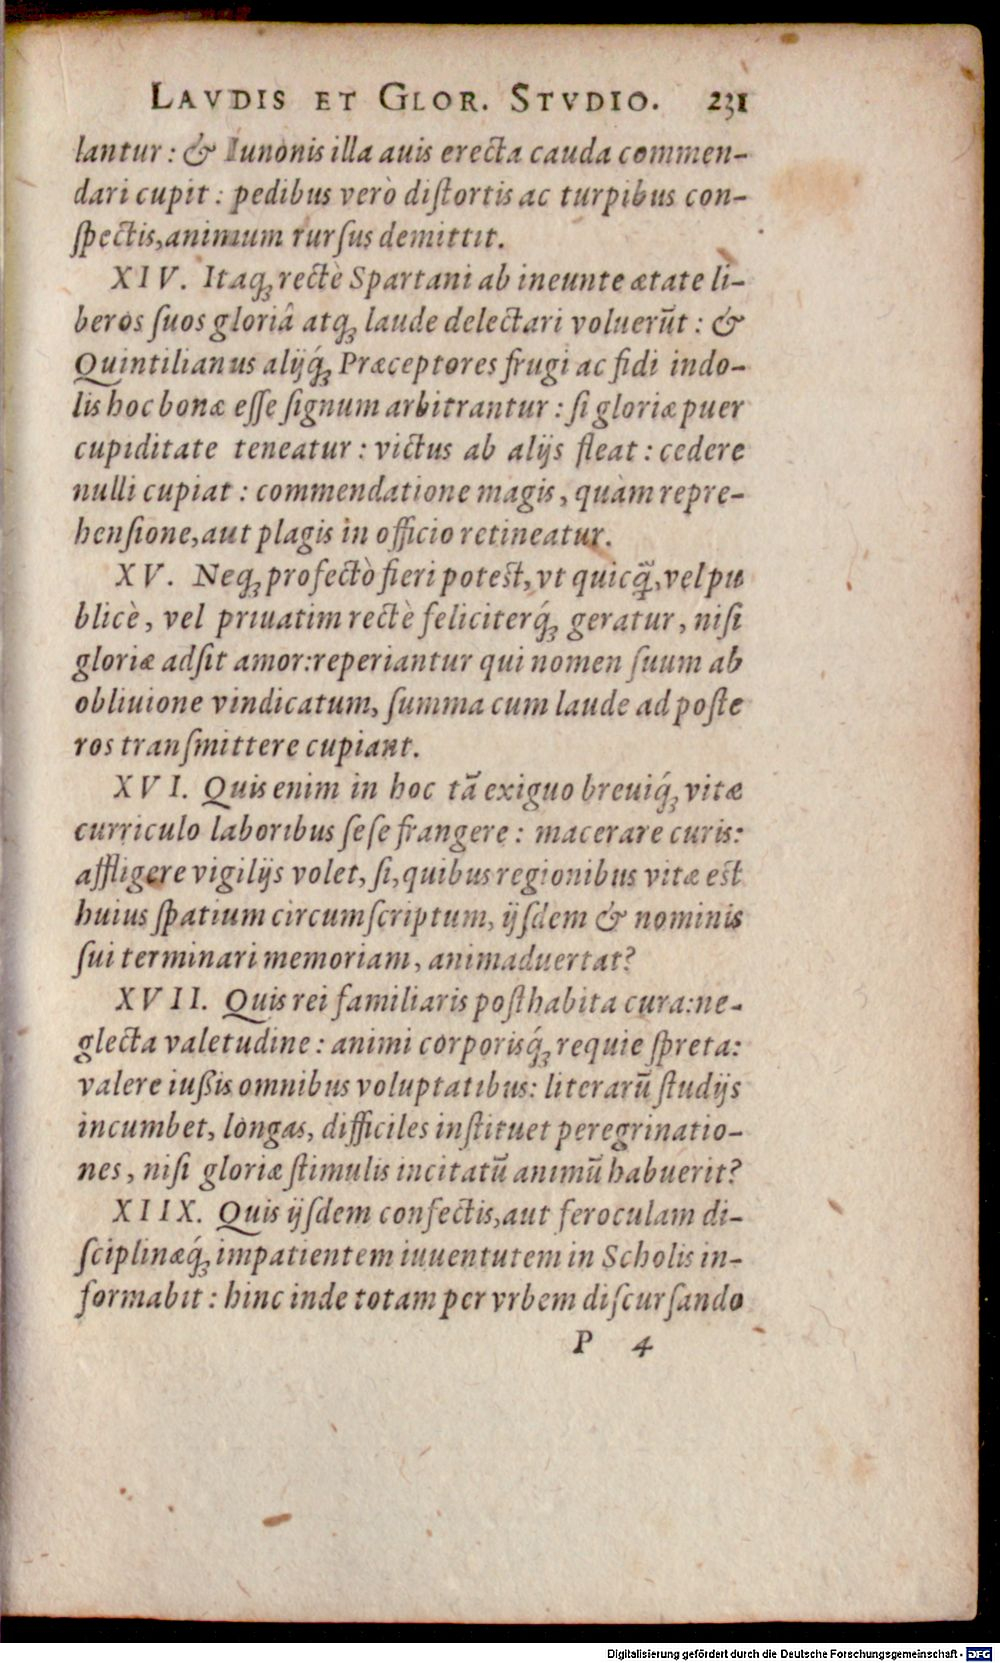 LAVDIS ET GLOR. STVDIO. 231
lantur: & Iunonis illa auis erecta cauda commen-
dari cupit: pedibus verò diſtortis ac turpibus con-
ſpectis, animum rurſus demittit.
XIV. Itaqꝫ rectè Spartani ab ineunte ætate li-
beros ſuos gloriâ atqꝫ laude delectari voluerũt: &
Quintilianus alijq́ꝫ Præceptores frugi ac fidi indo-
lis hoc bonæ eſſe ſignum arbitrantur: ſi gloriæ puer
cupiditate teneatur: victus ab alijs fleat: cedere
nulli cupiat: commendatione magis, quàm repre-
henſione, aut plagis in officio retineatur.
XV. Neqꝫ profectò fieri potest, vt quicq̃, vel pu
blicè, vel priuatim rectè feliciterq́ꝫ geratur, niſi
gloriæ adſit amor: reperiantur qui nomen ſuum ab
obliuione vindicatum, ſumma cum laude ad poſte
ros tranſmittere cupiant.
XVI. Quis enim in hoc tã exiguo breuiq́ꝫ vitæ
curriculo laboribus ſeſe frangere: macerare curis:
affligere vigilijs volet, ſi, quibus regionibus vitæ est
huius ſpatium circumſcriptum, ijſdem & nominis
ſui terminari memoriam, animaduertat?
XVII. Quis rei familiaris poſthabita cura: ne-
glecta valetudine: animi corporisq́ꝫ requie ſpreta:
valere iußis omnibus voluptatibus: literarũ ſtudijs
incumbet, longas, difficiles inſtituet peregrinatio-
nes, niſi gloriæ ſtimulis incitatũ animũ habuerit?
XIIX. Quis ijſdem confectis, aut feroculam di-
ſciplinæq́ꝫ impatientem iuuentutem in Scholis in-
formabit: hinc inde totam per vrbem diſcurſando
P 4
Digitalisierung gefördert durch die Deutsche Forschungsgemeinschaft - DFG